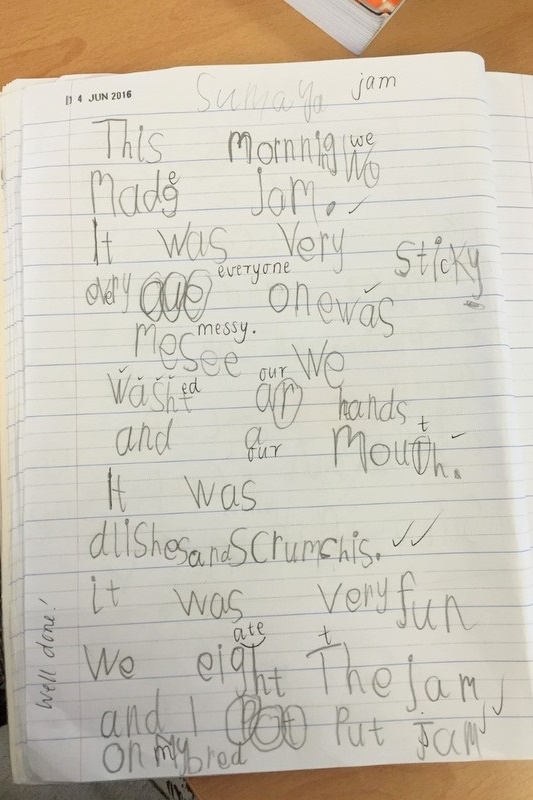 04 JUN 2016
Sumaya jam
This Mornnig we We
Made e jam.
It was very
sticky
every everyone one was
mesee messy.
We
washt ed our ar hands
and a our Mouth. t
It was
dlishes and Scrumshis.
it was very fun
ate t
We eight The jam
and I Pot Put jam
on my bred
Well done!